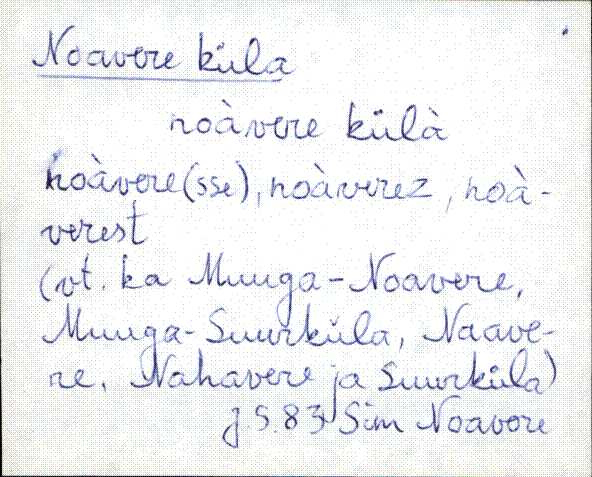 Noavere küla
noàvere külà
noàvere(sse), noàverez, noà-
verest
(vt. ka Muuga-Noavere,
Muuga-Suurküla, Naave-
re, Nahavere ja Suurküla)
J.S. 83 Sim Noavere